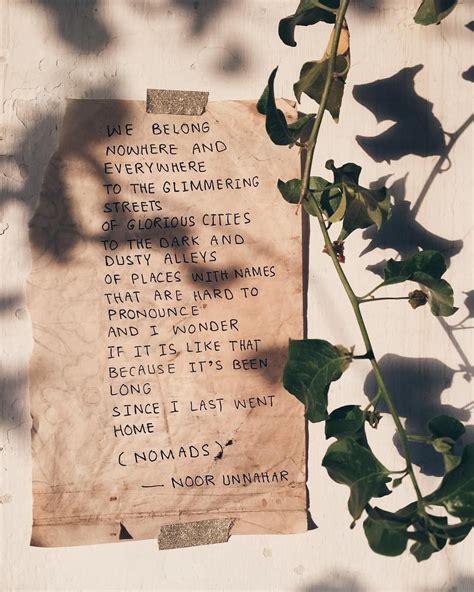 WE BELONG
NOWHERE AND
EVERYWHERE
TO THE GLIMMERING
STREETS
OF GLORIOUS CITIES
TO THE DARK AND
DUSTY ALLEYS
OF PLACES WITH NAMES
THAT ARE HARD TO
PRONOUNCE
AND I WONDER
IF IT IS LIKE THAT
BECAUSE IT'S BEEN
LONG
SINCE I LAST WENT
HOME
(NOMADS)
— NOOR UNNAHAR